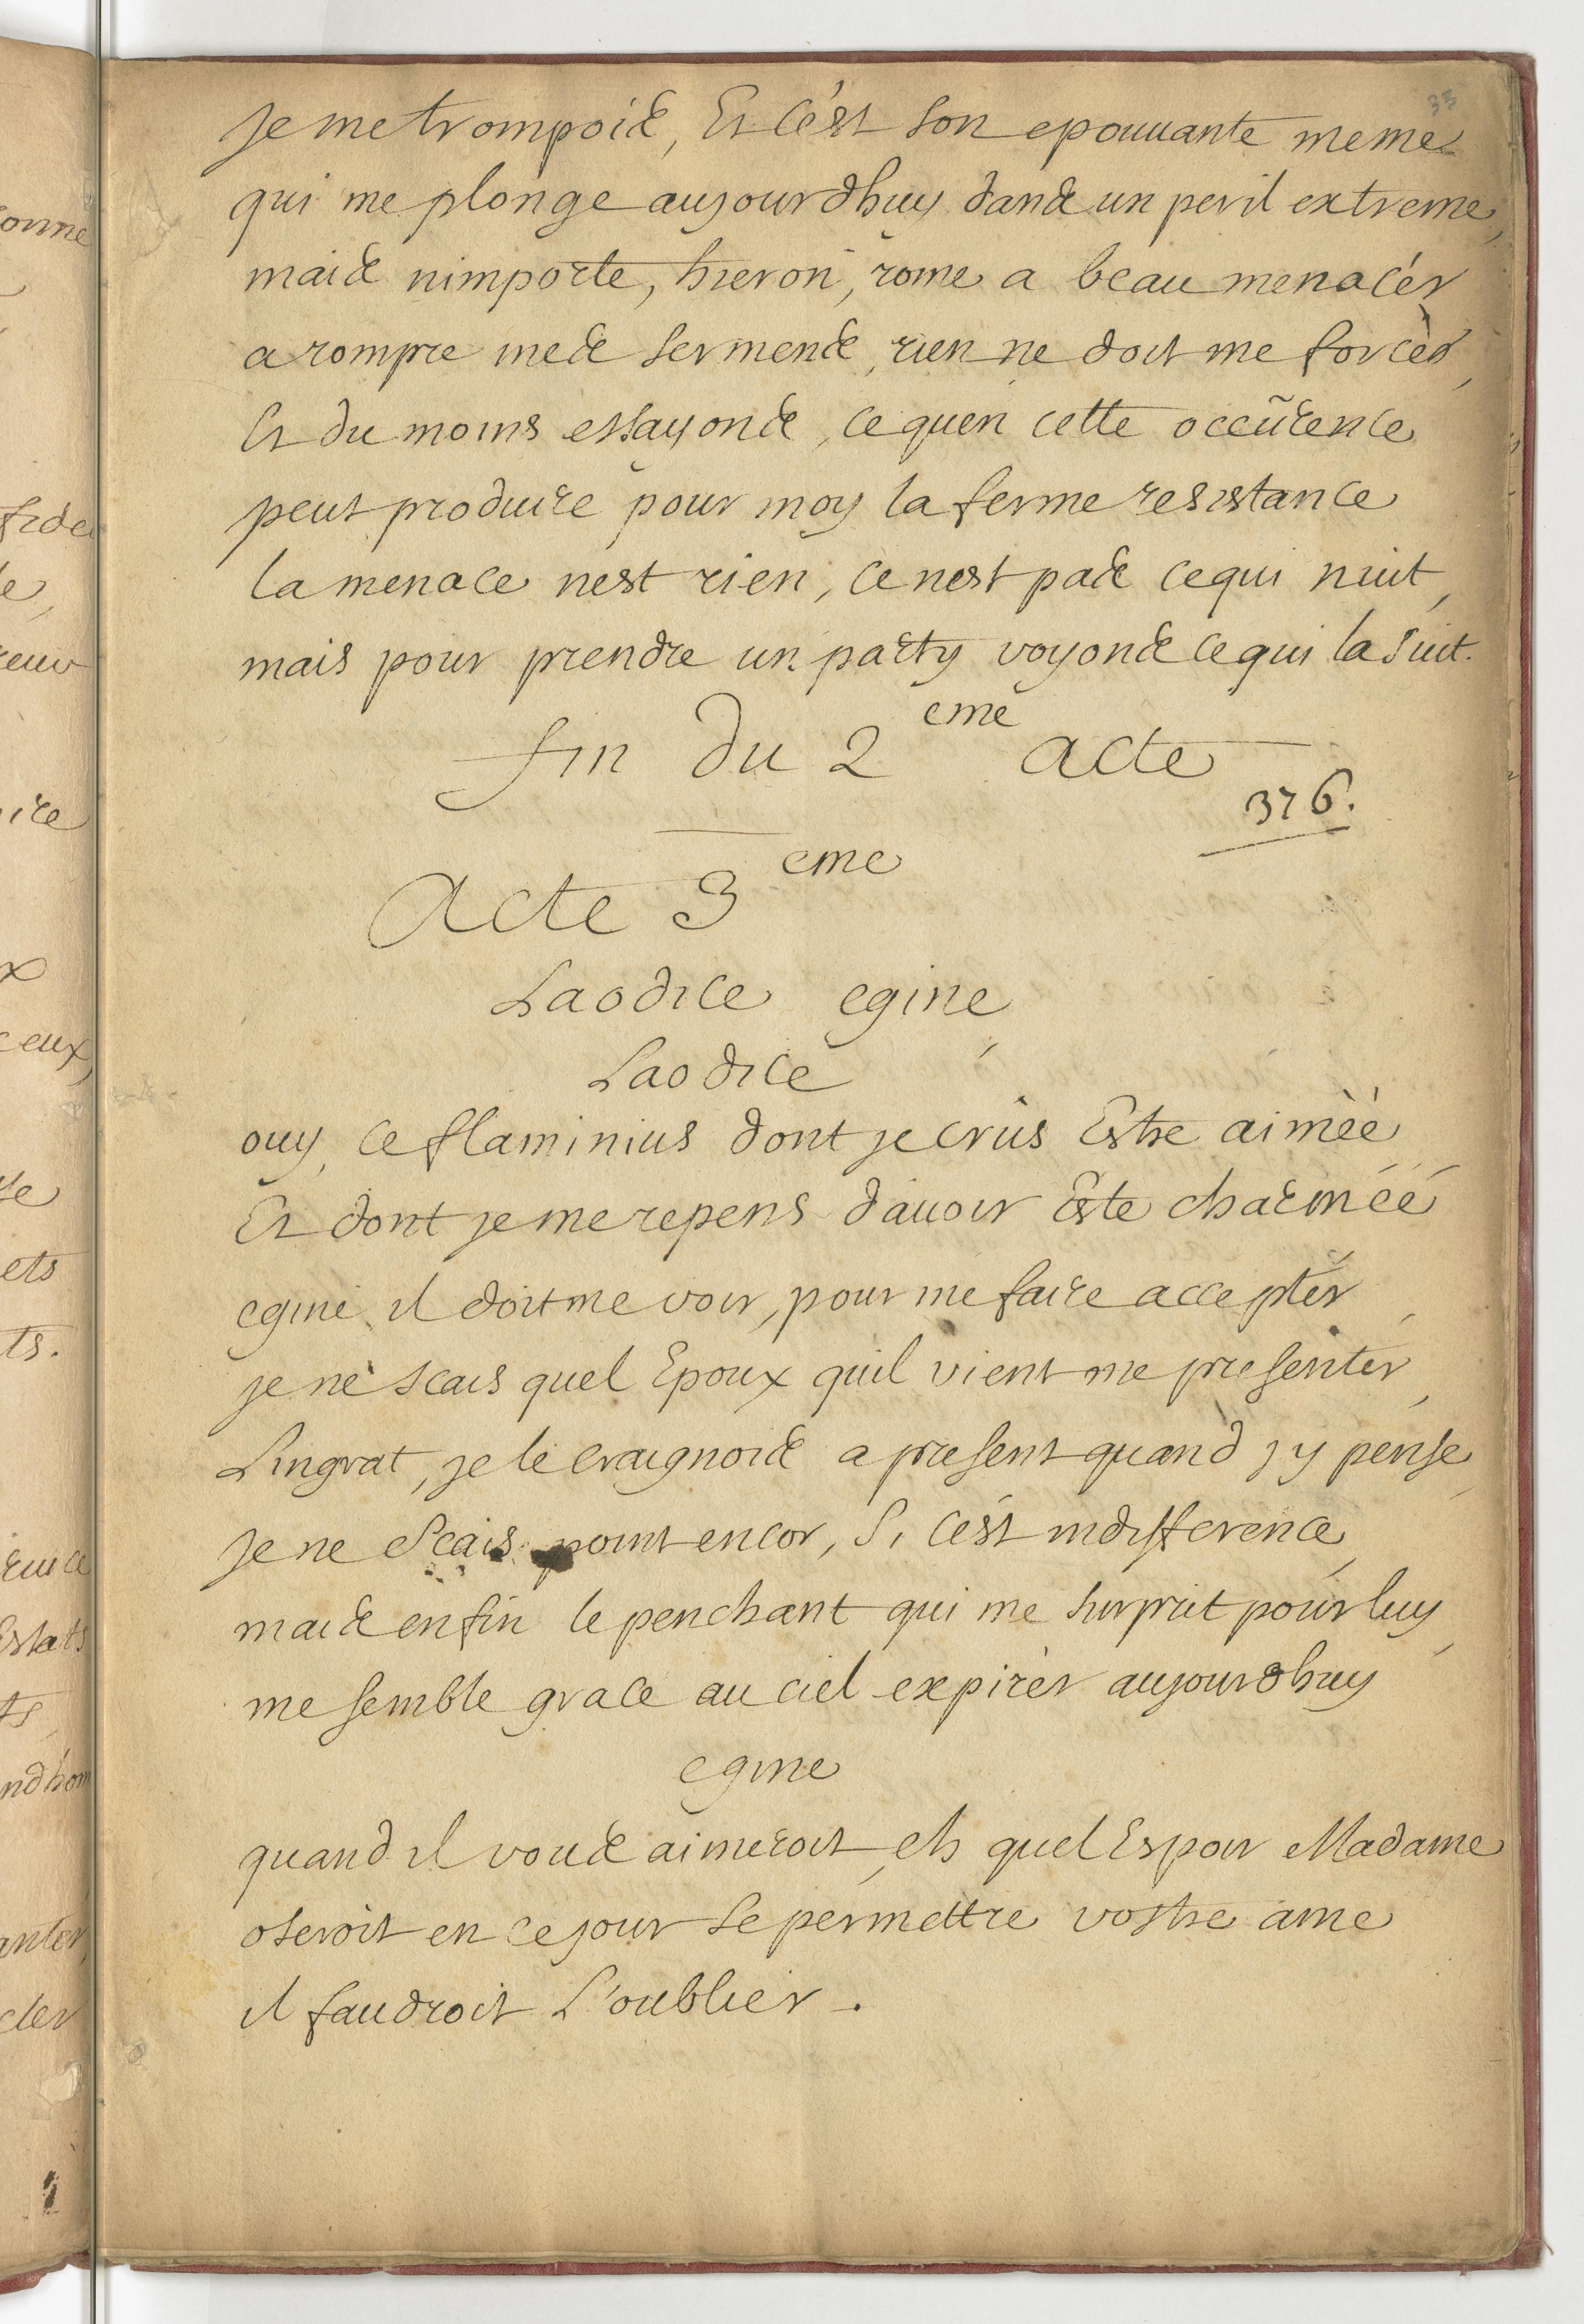 35
je me trompois, Et c'est son epouuante meme
qui me plonge aujourdhuy dans un peril extreme,
mais nimporte, hieron, rome a beau menacér
a rompre mes sermens, rien ne doit me forcèr,
Et du moins essayons, ce quen cette occurence
peut produire pour moy la ferme resistance
la menace nest rien, ce nest pas ce qui nuit,
mais pour prendre un party voyons ce qui la suit.
fin du 2 eme acte
376.
Acte 3 eme
Laodice egine
Laodice
ouy, ce flaminius dont je crus Estre aimèé
Et dont je me repens dauoir Este charméé
egine, il doit me voir, pour me faire accepter,
je ne scais quel Epoux quil vient me presenter,
Lingrat, je le craignois a present quand jy pense,
je ne scais point encor, Si c'est indifference,
mais enfin le penchant qui me surprit pour luy,
me semble grace au ciel expirèr aujourdhuy
egine
quand il vous aimeroit, eh quel Espoir Madame
oseroit en ce jour se permettre vostre ame
il faudroit L'oublier.